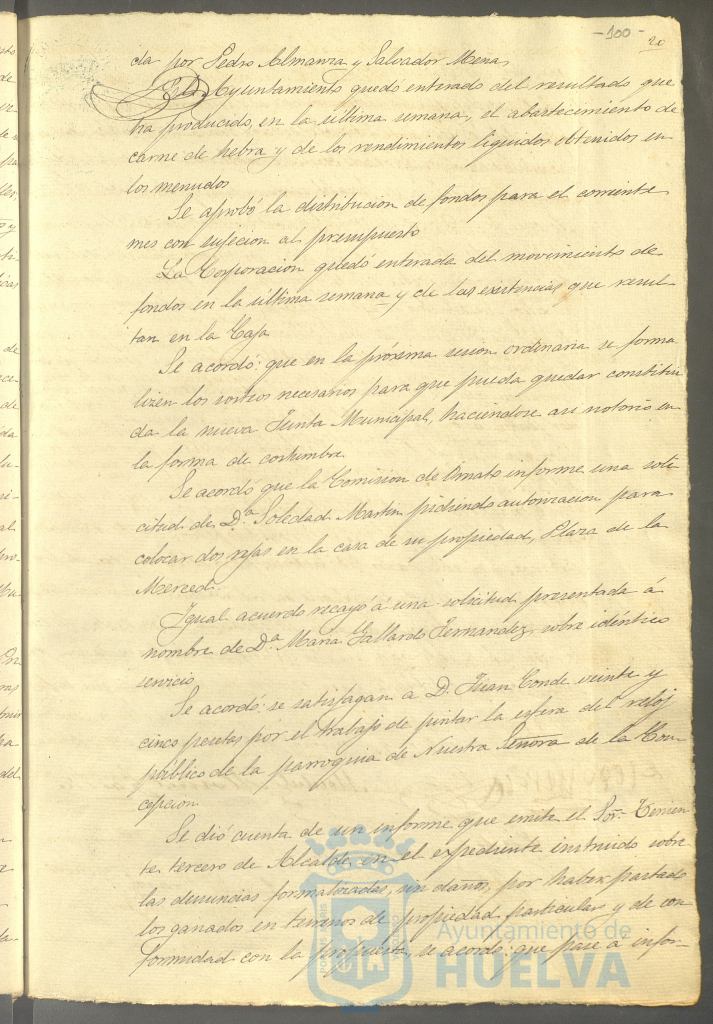 -100- 20
da por Pedro Almanza y Salvador Mena,
El Ayuntamiento quedó enterado del resultado que
ha producido, en la última semana, el abastecimiento de
carne de hebra y de los rendimientos liquidos obtenidos en
los menudos
Se aprobó la distribucion de fondos para el corriente
mes con sujecion al presupuesto
La Corporacion quedó enterada del movimiento de
fondos en la última semana y de las existencias que resul-
tan en la Caja
Se acordó: que en la próxima sesion ordinaria se forma
lizen los sorteos necesarios para que pueda quedar constitui
da la nueva Junta Municipal, haciendose asi notorio en
la forma de costumbre.
Se acordó que la Comision de Ornato informe una soli
citud de D.ª Soledad Martin pidiendo autorizacion para
colocar dos rejas en la casa de su propiedad, Plaza de la
Merced.
Igual acuerdo recayó á una solicitud presentada á
nombre de D.ª Maria Gallardo Fernandez, sobre idéntico
servicio,
Se acordó: se satisfagan a D. Juan Conde veinte y
cinco pesetas por el trabajo de pintar la esfera del reloj
público de la parroquia de Nuestra Señora de la Con-
cepcion
Se dió cuenta de un informe que emite el Sor. Tenien
te tercero de Alcalde, en el expediente instruido sobre
las denuncias formalizadas, sin daños, por haber pastado
los ganados en terrenos de propiedad particular y de con
formidad con la propuesta, se acordó: que pase a infor-
Ayuntamiento de
HUELVA